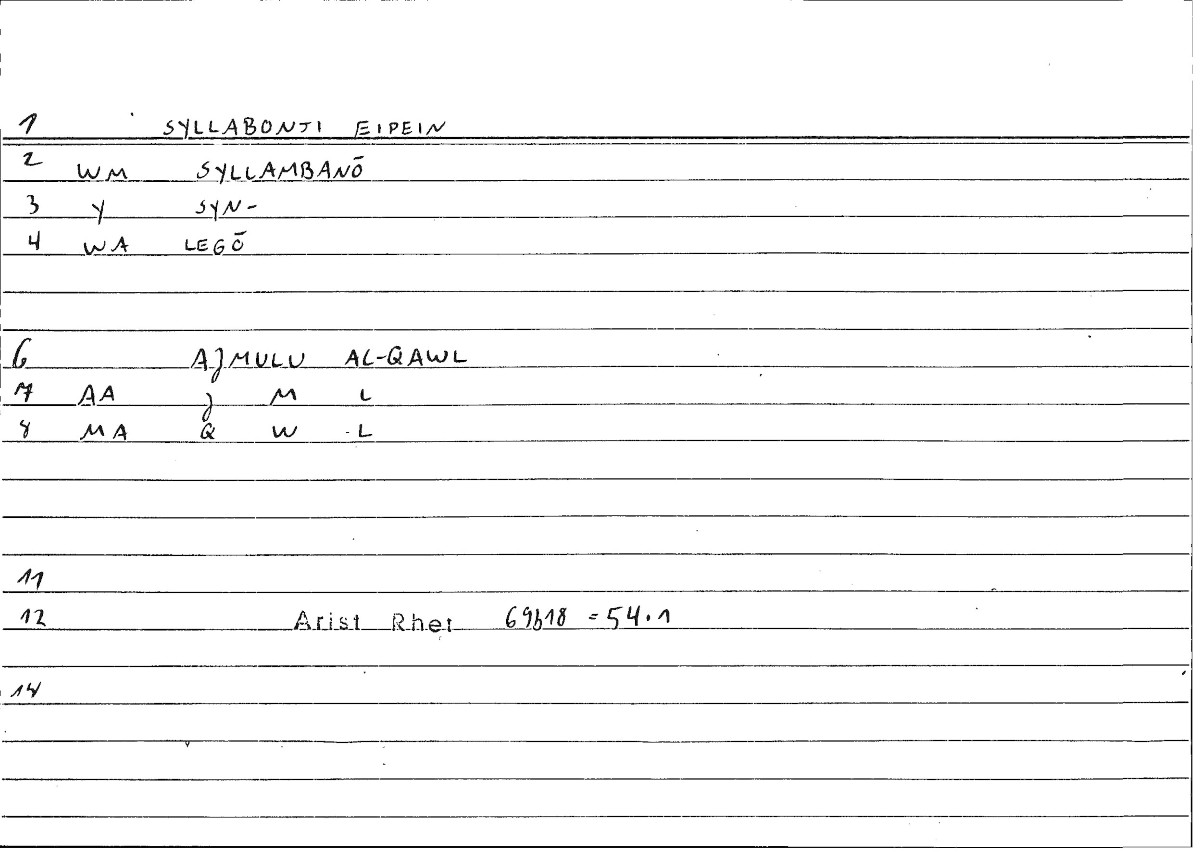 1 SYLLABONTI EIPEIN
2 WM SYLLAMBANŌ
3 Y SYN-
4 WA LEGŌ
6 AJMULU AL-QAWL
7 AA J M L
8 MA Q W L
11
12 Arist Rhet 69b18 = 54.1
14